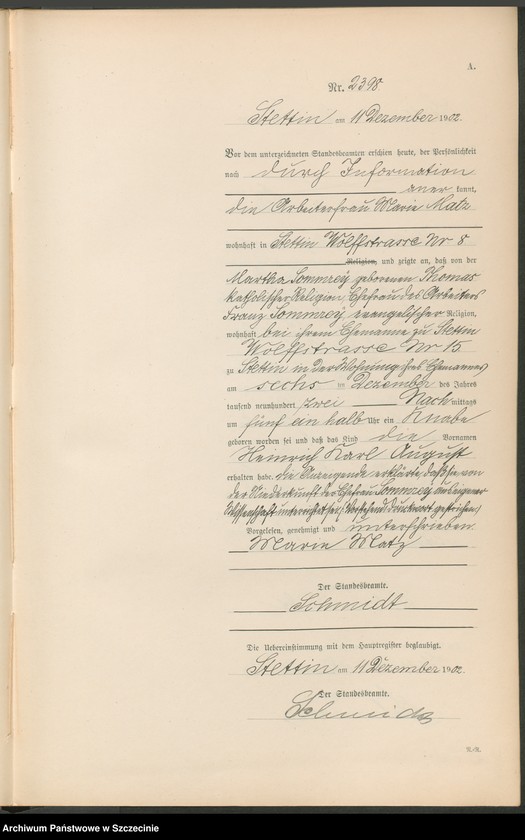 A.
Nr. 2398
Stettin am 11 Dezember 1902.
Vor dem unterzeichneten Standesbeamten erschien heute, der Persönlichkeit
nach durch Information
aner kannt,
die Arbeiterfrau Marie Matz
wohnhaft in Stettin Wolffstrasse Nr 8
Religion, und zeigte an, daß von der
Martha Sommrey geborenen Thomas
katholischer Religion, Ehefrau des Arbeiters
Franz Sommrey, evangelischer Religion,
wohnhaft bei ihrem Ehemanne zu Stettin
Wolffstrasse Nr 15
zu Stettin in der Wohnung ihres Ehemannes
am sechs ten Dezember des Jahres
tausend neunhundert zwei Nach mittags
um fünf ein halb Uhr ein Knabe
geboren worden sei und daß das Kind die Vornamen
Heinrich Karl August
erhalten habe. Die Anzeigende erklärte, daß sie von
der Niederkunft der Ehefrau Sommrey aus eigener
Wissenschaft unterrichtet sei. (Vorstehend Druckwort gestrichen)
Vorgelesen, genehmigt und unterschrieben
Marie Matz
Der Standesbeamte.
Schmidt
Die Uebereinstimmung mit dem Hauptregister beglaubigt.
Stettin am 11 Dezember 1902.
Der Standesbeamte.
Archiwum Państwowe w Szczecinie